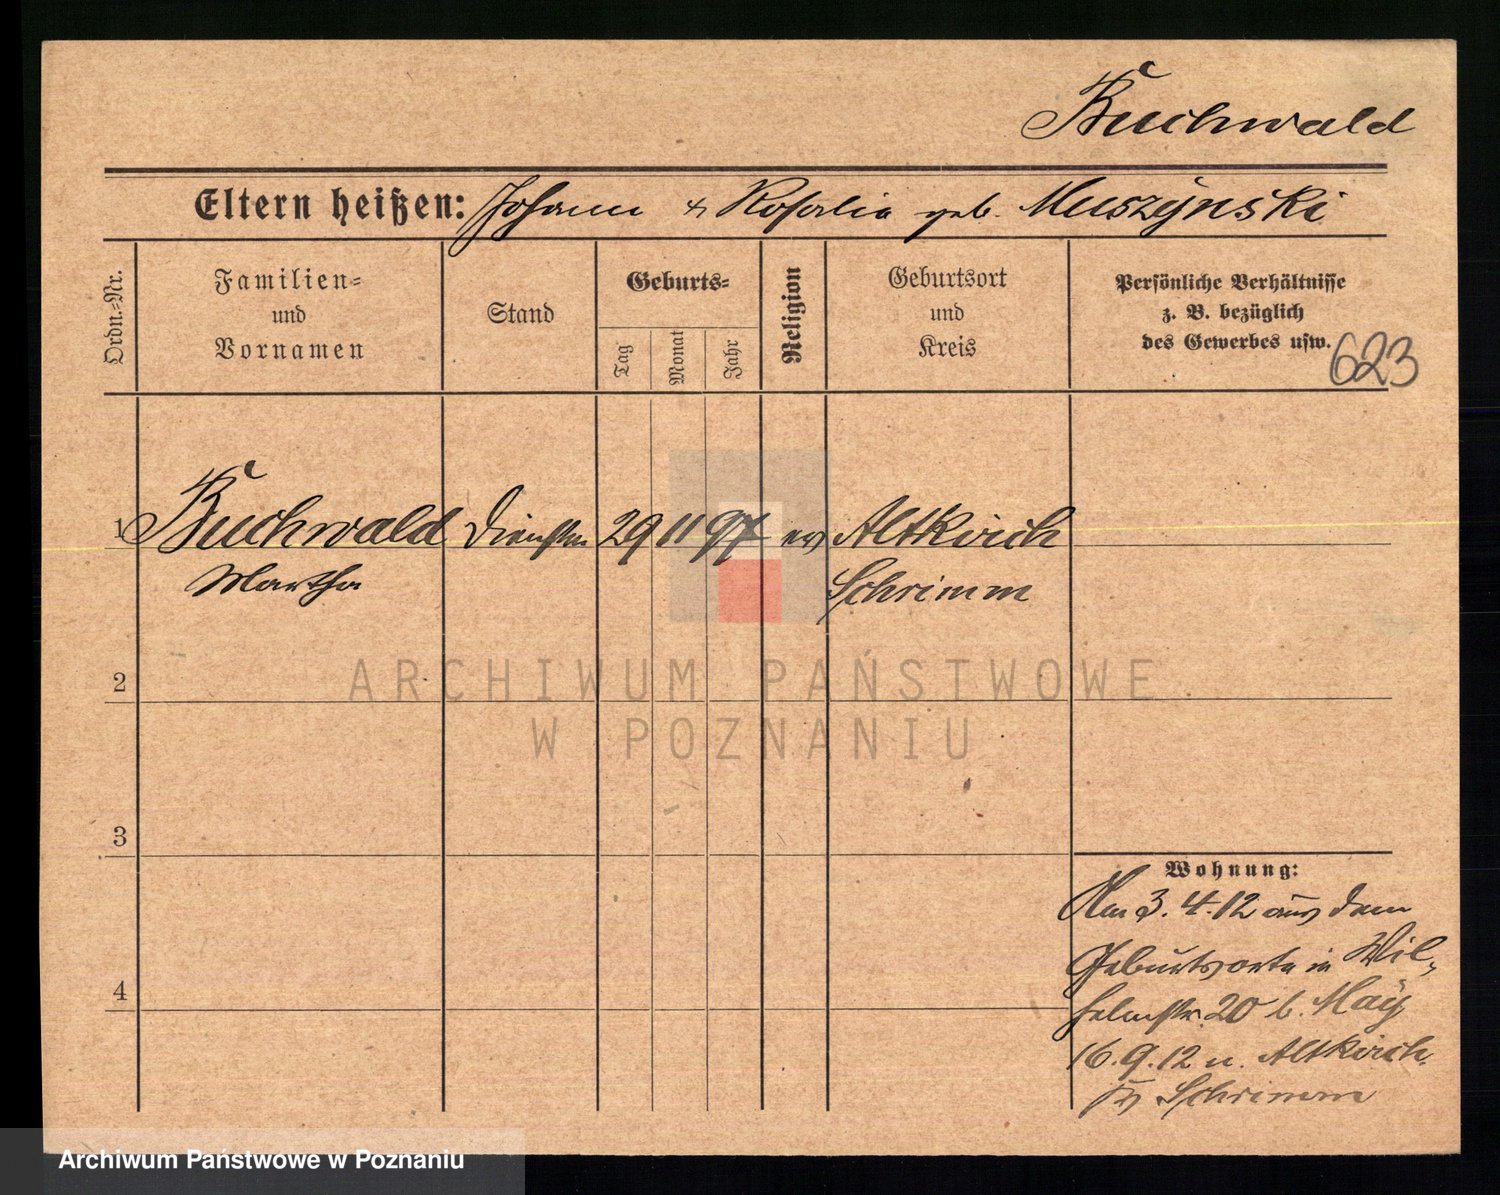 Buchwald
Eltern heißen: Johann & Rosalia geb. Muszynski
Ordn.=Nr.
Familien=
und
Vornamen
Stand
Geburts=
Tag
Monat
Jahr
Religion
Geburtsort
und
Kreis
Persönliche Verhältnisse
z. B. bezüglich
des Gewerbes usw.
623
1 Buchwald Dienstm 29 11 97 ev Altkirch
Martha Schrimm
2
3
4
Wohnung:
Am 3.4.12 aus dem
Geburtsorte in Wil-
helmstr. 20 b. May
16.9.12 n. Altkirch
Kr Schrimm
ARCHIWUM PAŃSTWOWE
W POZNANIU
Archiwum Państwowe w Poznaniu